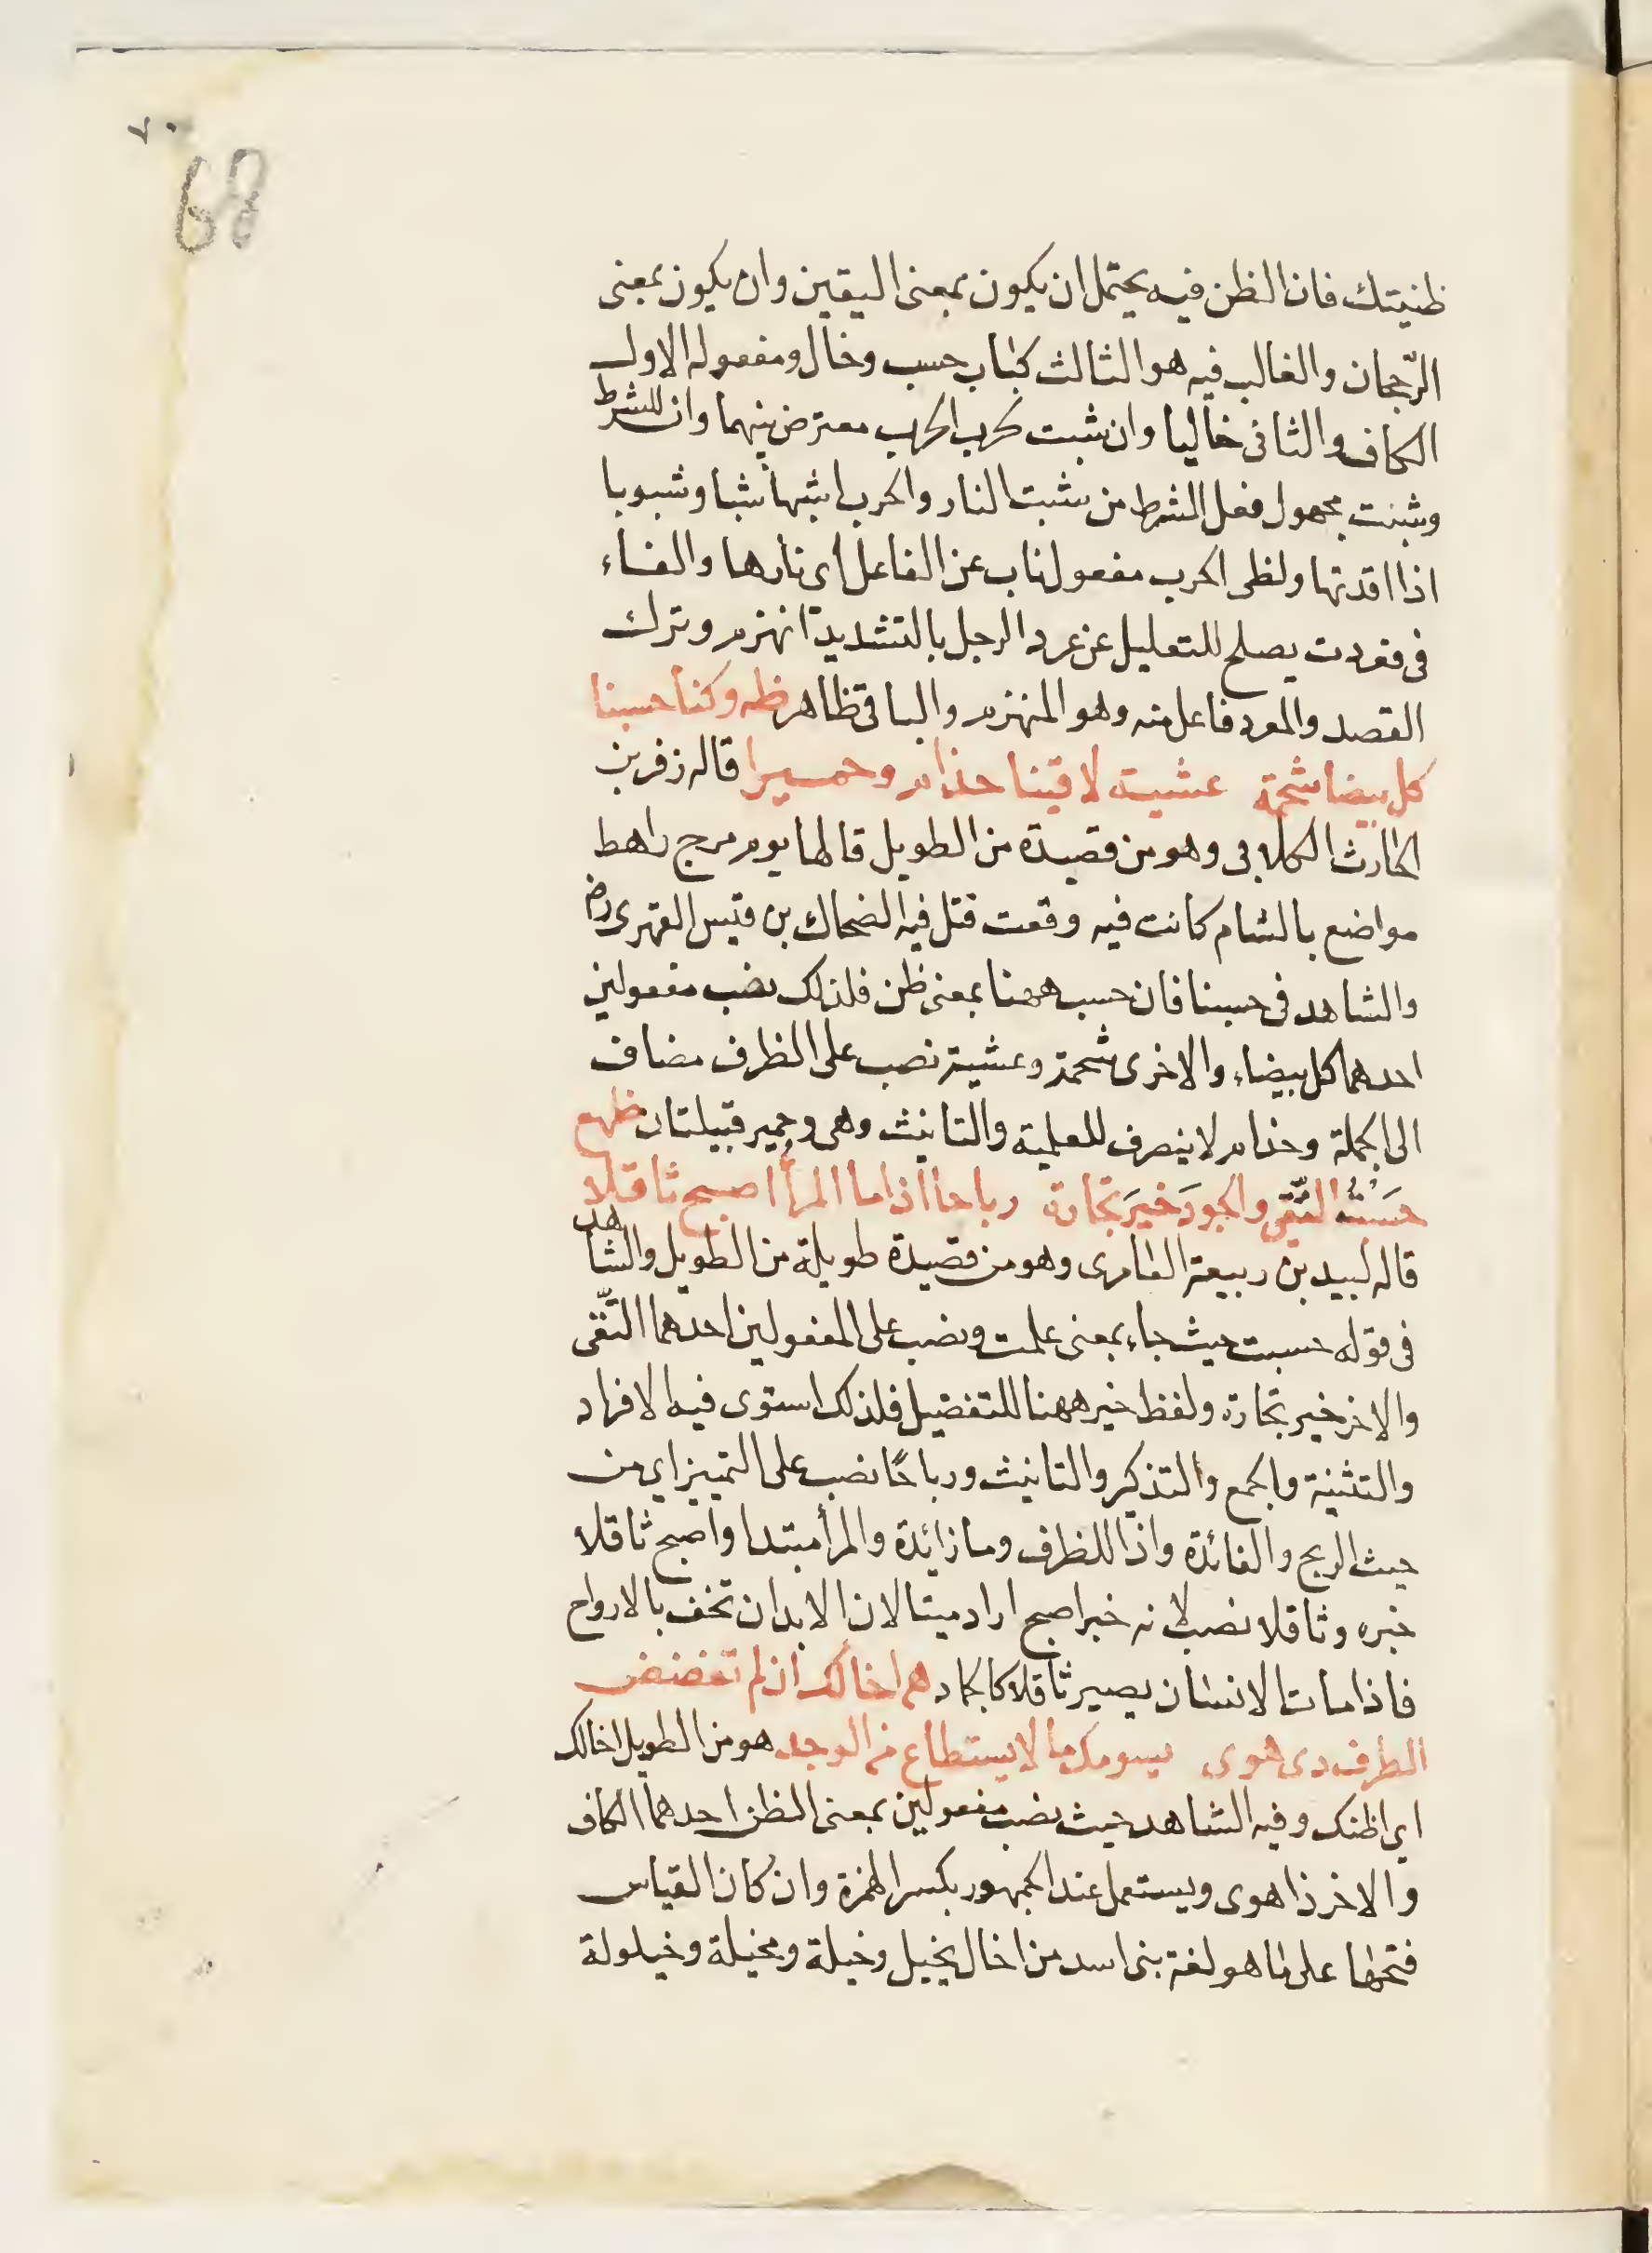 ٧٠
68
ظنيتك فان الظن فيه يحتمل ان يكون بمعنى اليقين وان يكون بمعنى
الرّجحان والغالب فيه هو الثالث كباب حسب وخال ومفعوله الاول
الكاف والثانى خاليا وان شبت كرب الحرب معترض بينهما وان للشرط
وشبت مجهول فعل الشرط من شببت النار والحرب اشبها شبا وشبوبا
اذا اقدتها ولظى الحرب مفعول ناب عن الفاعل اى نارها والفاء
فى فعردت يصلح للتعليل عن عرد الرجل بالتشديد انهزم وترك
القصد والمعرد فاعل منه وهو المنهزم والباقى ظاهر ظه وكنا حسبنا
كل بيضا شحمة عشية لاقينا حذام وحميرا قاله زفر بن
الحارث الكلابى وهو من قصيدة من الطويل قالها يوم مرج راهط
مواضع بالشام كانت فيه وقعت قتل فيه الضحاك بن قيس الفهرى رض
والشاهد فى حسبنا فان حسب ههنا بمعنى ظن فلذلك نصب مفعولين
احدهما كل بيضاء والاخرى شحمة وعشية نصب على الظرف مضاف
الى الجملة وحذام لا ينصرف للعلمية والتانيث وهى وحمير قبيلتان ظهع
حسبت التّقى والجودَ خيرَ تجارة رباحا اذا ما المرأ اصبح ثاقلا
قاله لبيد بن ربيعة العامرى وهو من قصيدة طويلة من الطويل والشاهد
فى قوله حسبت حيث جاء بمعنى علمت ونصب على المفعولين احدهما التّقى
والاخر خير تجارة ولفظ خير ههنا للتفضيل فلذلك استوى فيه الافراد
والتثنية والجمع والتذكير والتانيث ورباحًا نصب على التمييز اى من
حيث الربح والفائدة واذا للظرف وما زائدة والمرأ مبتدا واصبح ثاقلا
خبره وثاقلا نصب لانه خبر اصبح اراد ميتا لان الابدان تخف بالارواح
فاذا مات الانسان يصير ثاقلا كالجماد هم اخالك ان لم تغضض
الطرف دى هوى يسومك ما لا يستطاع من الوجد هو من الطويل اخالك
اى اظنك وفيه الشاهد حيث نصب مفعولين بمعنى الظن احدهما الكاف
والاخر ذا هوى ويستعمل عند الجمهور بكسر الهمزة وان كان القياس
فتحها على ما هو لغة بنى اسد من اخال يخيل وخيلة ومخيلة وخيلولة